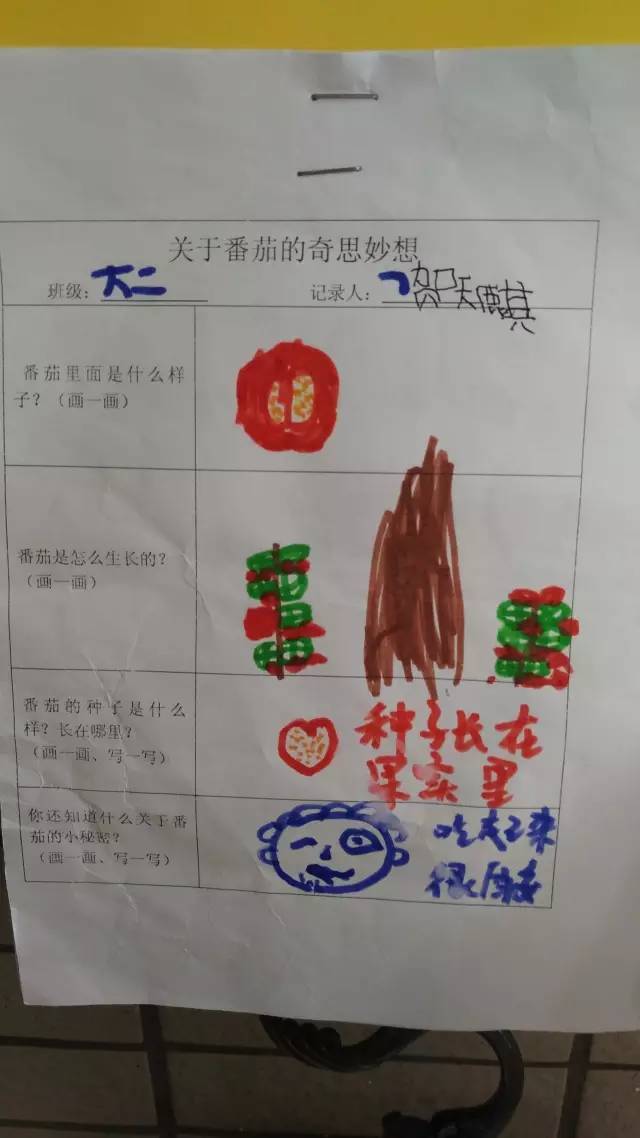 关于番茄的奇思妙想
班级：大二
记录人：贺天麒
番茄里面是什么样
子？（画一画）
番茄是怎么生长的？
（画一画）
番茄的种子是什么
样？长在哪里？
（画一画、写一写）
种子长在
果实里
你还知道什么关于番
茄的小秘密？
（画一画、写一写）
吃起来
很酸